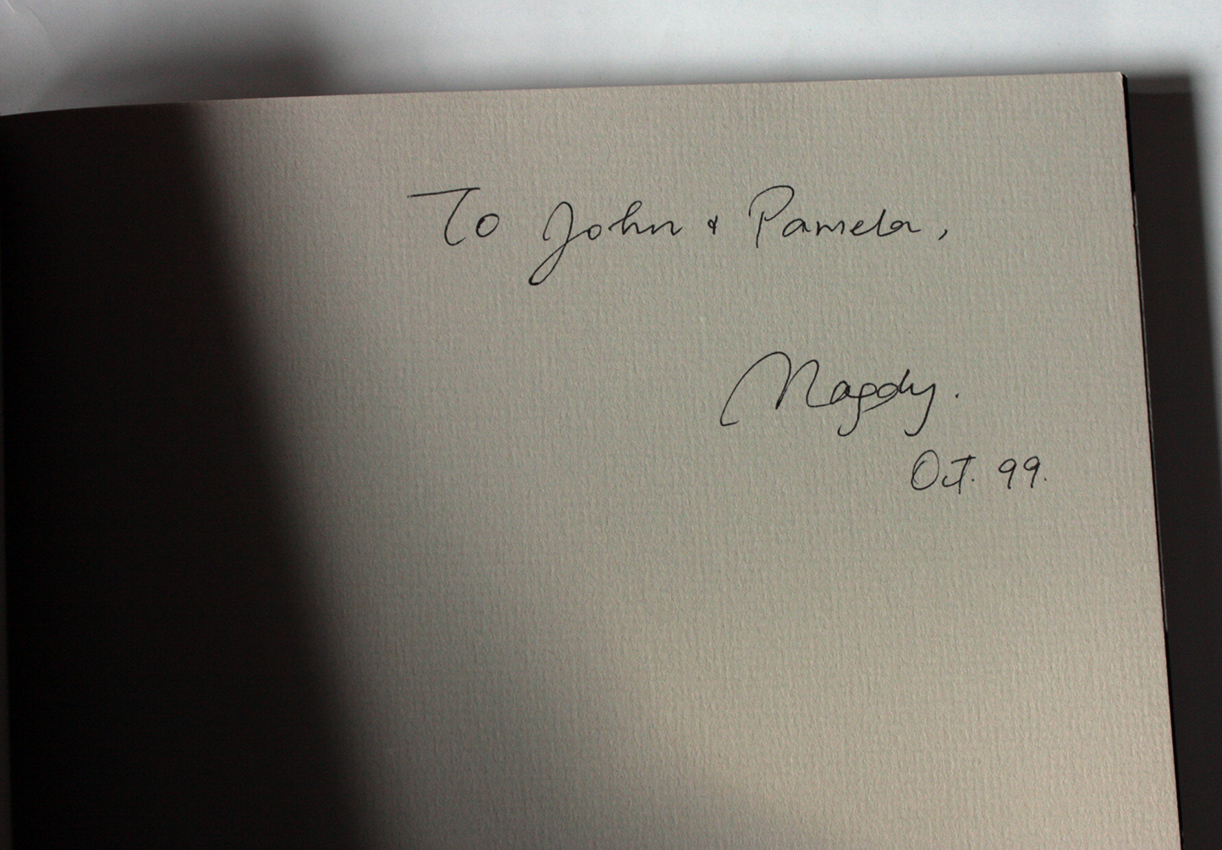 To John & Pamela,
Magdy.
Oct. 99.